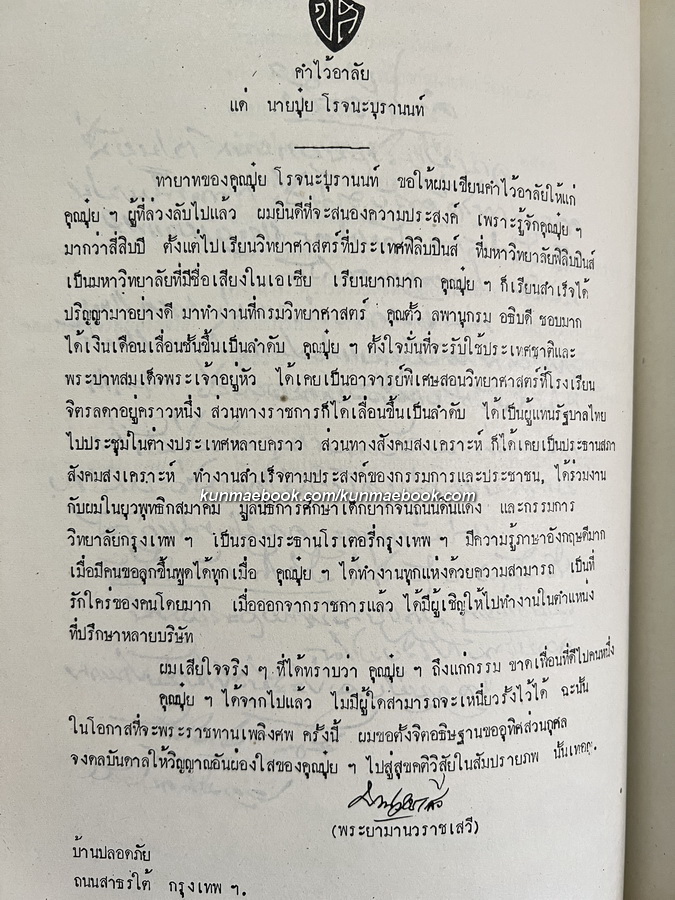 คำไว้อาลัย
แด่ นายปุ๋ย โรจนะบุรานนท์
ทายาทของคุณปุ๋ย โรจนะบุรานนท์ ขอให้ผมเขียนคำไว้อาลัยให้แก่
คุณปุ๋ย ฯ ผู้ที่ล่วงลับไปแล้ว ผมยินดีที่จะสนองความประสงค์ เพราะรู้จักคุณปุ๋ย ฯ
มากว่าสี่สิบปี ตั้งแต่ไปเรียนวิทยาศาสตร์ที่ประเทศฟิลิปปินส์ ที่มหาวิทยาลัยฟิลิปปินส์
เป็นมหาวิทยาลัยที่มีชื่อเสียงในเอเซีย เรียนยากมาก คุณปุ๋ย ฯ ก็เรียนสำเร็จได้
ปริญญามาอย่างดี มาทำงานที่กรมวิทยาศาสตร์ คุณตั้ว ลพานุกรม อธิบดี ชอบมาก
ได้เงินเดือนเลื่อนชั้นขึ้นเป็นลำดับ คุณปุ๋ย ฯ ตั้งใจมั่นที่จะรับใช้ประเทศชาติและ
พระบาทสมเด็จพระเจ้าอยู่หัว ได้เคยเป็นอาจารย์พิเศษสอนวิทยาศาสตร์ที่โรงเรียน
จิตรลดาอยู่คราวหนึ่ง ส่วนทางราชการก็ได้เลื่อนขึ้นเป็นลำดับ ได้เป็นผู้แทนรัฐบาลไทย
ไปประชุมในต่างประเทศหลายคราว ส่วนทางสังคมสงเคราะห์ ก็ได้เคยเป็นประธานสภา
สังคมสงเคราะห์ ทำงานสำเร็จตามประสงค์ของกรรมการและประชาชน, ได้ร่วมงาน
kunmaebook.com/kunmaebook.com
กับผมในยุวพุทธิกสมาคม มูลนิธิการศึกษาเด็กยากจนถนนดินแดง และกรรมการ
วิทยาลัยกรุงเทพ ฯ เป็นรองประธานโรเตอรี่กรุงเทพ ฯ มีความรู้ภาษาอังกฤษดีมาก
เมื่อมีคนขอลุกขึ้นพูดได้ทุกเมื่อ คุณปุ๋ย ฯ ได้ทำงานทุกแห่งด้วยความสามารถ เป็นที่
รักใคร่ของคนโดยมาก เมื่อออกจากราชการแล้ว ได้มีผู้เชิญให้ไปทำงานในตำแหน่ง
ที่ปรึกษาหลายบริษัท
ผมเสียใจจริง ๆ ที่ได้ทราบว่า คุณปุ๋ย ฯ ถึงแก่กรรม ขาดเพื่อนที่ดีไปคนหนึ่ง
คุณปุ๋ย ฯ ได้จากไปแล้ว ไม่มีผู้ใดสามารถจะเหนี่ยวรั้งไว้ได้ ฉะนั้น
ในโอกาสที่จะพระราชทานเพลิงศพ ครั้งนี้ ผมขอตั้งจิตอธิษฐานขออุทิศส่วนกุศล
จงดลบันดาลให้วิญญาณอันผ่องใสของคุณปุ๋ย ฯ ไปสู่สุขคติวิสัยในสัมปรายภพ นั้นเทอญ.
(พระยามานวราชเสวี)
บ้านปลอดภัย
ถนนสาธรใต้ กรุงเทพ ฯ.